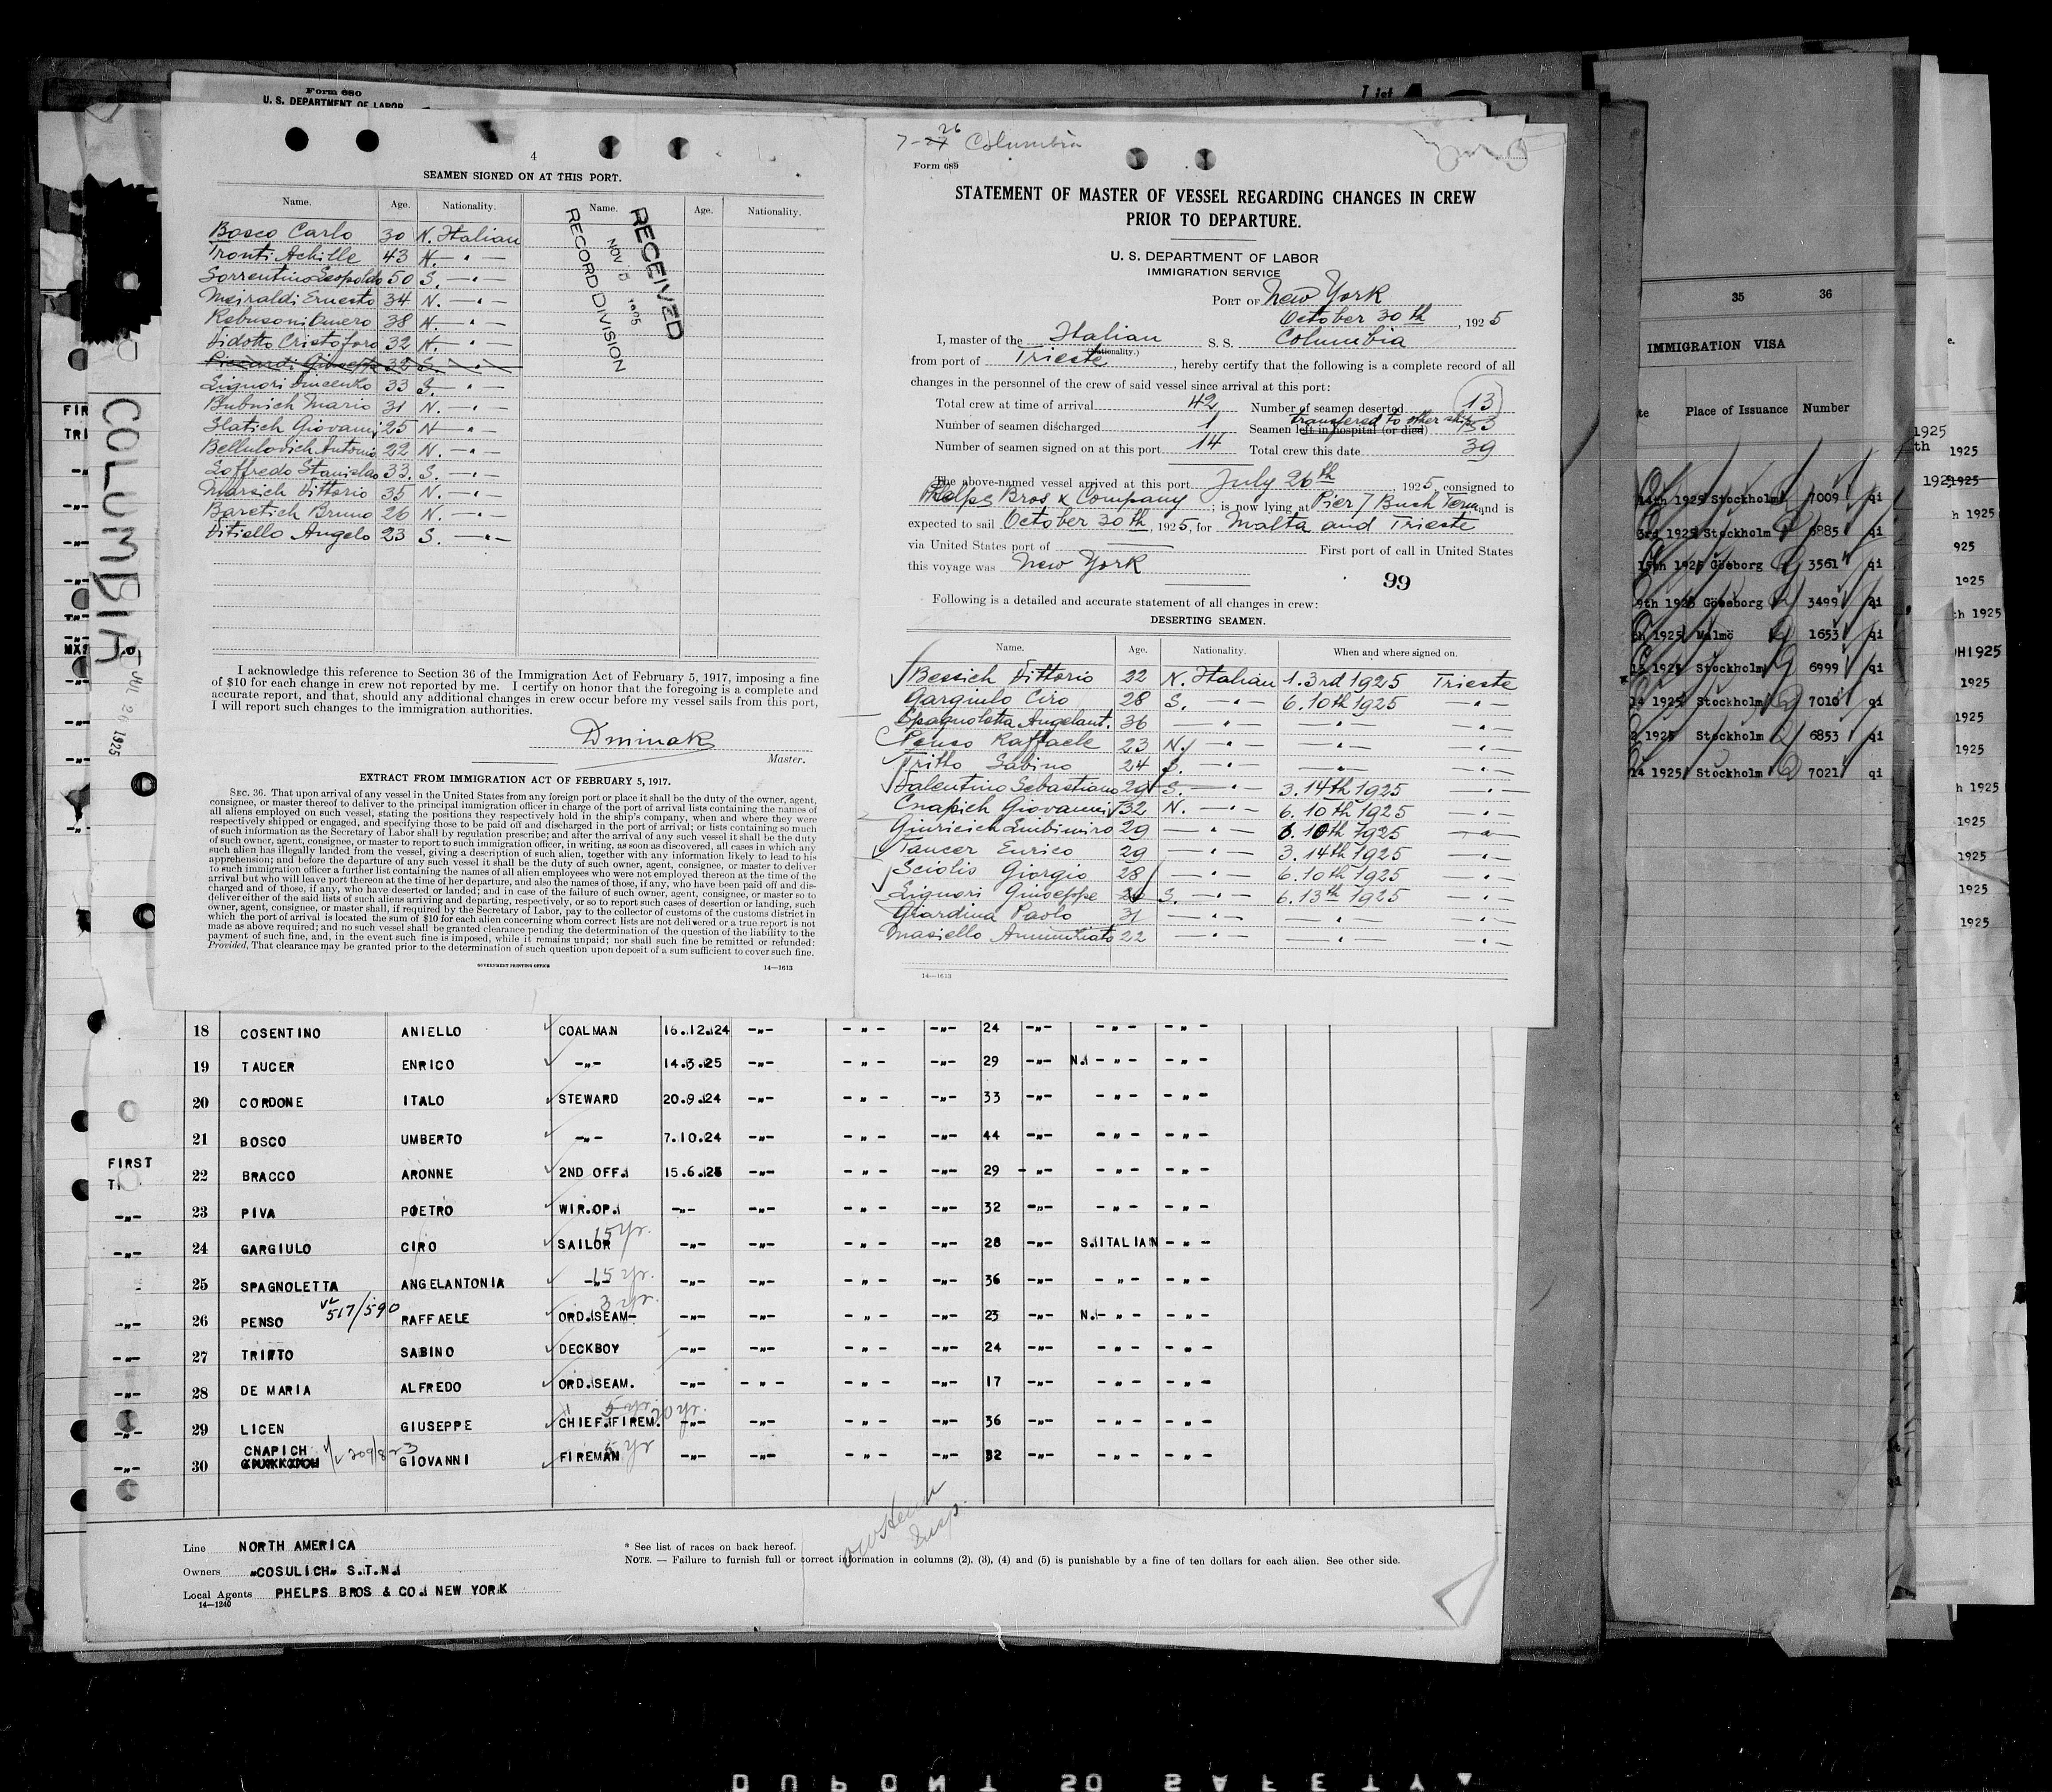 Form 680
U. S. DEPARTMENT OF LABOR
List
4
SEAMEN SIGNED ON AT THIS PORT.
Name. Age. Nationality. Name. Age. Nationality.
Bosco Carlo 30 N. Italian
Tronti Achille 43 N. — " —
Sorrentino Leopoldo 50 S. — " —
Meiraldi Ernesto 34 N. — " —
Rebusoni Omero 38 N. — " —
Sidoto Cristoforo 32 N. — " —
Piccardi Giuseppe 38 S. "
Liguori Vincenzo 33 S. — " —
Bubnich Mario 31 N. — " —
Slatich Giovanni 25 N — " —
Bellulovich Antonio 22 N. — " —
Loffredo Stanislao 33. S. — " —
Marsich Vittorio 35 N. — " —
Baretich Bruno 26 N. — " —
Vitiello Angelo 23 S. — " —
RECEIVED
NOV 1925
RECORD DIVISION
I acknowledge this reference to Section 36 of the Immigration Act of February 5, 1917, imposing a fine
of $10 for each change in crew not reported by me. I certify on honor that the foregoing is a complete and
accurate report, and that, should any additional changes in crew occur before my vessel sails from this port,
I will report such changes to the immigration authorities.
Master.
EXTRACT FROM IMMIGRATION ACT OF FEBRUARY 5, 1917.
SEC. 36. That upon arrival of any vessel in the United States from any foreign port or place it shall be the duty of the owner, agent,
consignee, or master thereof to deliver to the principal immigration officer in charge of the port of arrival lists containing the names of
all aliens employed on such vessel, stating the positions they respectively hold in the ship's company, when and where they were
respectively shipped or engaged, and specifying those to be paid off and discharged in the port of arrival; or lists containing so much
of such information as the Secretary of Labor shall by regulation prescribe; and after the arrival of any such vessel it shall be the duty
of such owner, agent, consignee, or master to report to such immigration officer, in writing, as soon as discovered, all cases in which any
such alien has illegally landed from the vessel, giving a description of such alien, together with any information likely to lead to his
apprehension; and before the departure of any such vessel it shall be the duty of such owner, agent, consignee, or master to deliver
to such immigration officer a further list containing the names of all alien employees who were not employed thereon at the time of the
arrival but who will leave port thereon at the time of her departure, and also the names of those, if any, who have been paid off and dis-
charged and of those, if any, who have deserted or landed; and in case of the failure of such owner, agent, consignee, or master so to
deliver either of the said lists of such aliens arriving and departing, respectively, or so to report such cases of desertion or landing, such
owner, agent, consignee, or master shall, if required by the Secretary of Labor, pay to the collector of customs of the customs district in
which the port of arrival is located the sum of $10 for each alien concerning whom correct lists are not delivered or a true report is not
made as above required; and no such vessel shall be granted clearance pending the determination of the question of the liability to the
payment of such fine, and, in the event such fine is imposed, while it remains unpaid; nor shall such fine be remitted or refunded:
Provided, That clearance may be granted prior to the determination of such question upon deposit of a sum sufficient to cover such fine.
GOVERNMENT PRINTING OFFICE 14—1613
COLUMBIA
JUL 26 1925
7-27 26 Columbia
Form 689
STATEMENT OF MASTER OF VESSEL REGARDING CHANGES IN CREW
PRIOR TO DEPARTURE.
U. S. DEPARTMENT OF LABOR
IMMIGRATION SERVICE
PORT OF New York
October 30th, 1925
I, master of the Italian S. S. Columbia
(Nationality.)
from port of Trieste, hereby certify that the following is a complete record of all
changes in the personnel of the crew of said vessel since arrival at this port:
Total crew at time of arrival 42 Number of seamen deserted 13
Number of seamen discharged 1 Seamen left in hospital (or died) transferred to other ship 3
Number of seamen signed on at this port 14 Total crew this date 39
The above-named vessel arrived at this port July 26th, 1925, consigned to
Phelps Bros & Company; is now lying at Pier 7 Bush Term, and is
expected to sail October 30th, 1925, for Malta and Trieste
via United States port of ——— First port of call in United States
this voyage was New York
99
Following is a detailed and accurate statement of all changes in crew:
DESERTING SEAMEN.
Name. Age. Nationality. When and where signed on.
Bessich Vittorio 22 N. Italian 1. 3rd 1925 Trieste
Gargiulo Ciro 28 S. — " — 6. 10th 1925 — " —
Spagnoletta Angelant. 36 — " — — " — — " —
Penso Raffaele 23 N. — " — — " — — " —
Tritto Sabino 24 S. — " — — " — — " —
Valentino Sebastiano 29 S. — " — 3. 14th 1925 — " —
Cnapich Giovanni 32 N. — " — 6. 10th 1925 — " —
Giuricich Liubimiro 29 — " — 6. 10th 1925 — " —
Taucer Enrico 29 — " — 3. 14th 1925 — " —
Sciolis Giorgio 28 — " — 6. 10th 1925 — " —
Liguori Giuseppe S. — " — 6. 13th 1925 — " —
Giardina Paolo 31 — " — — " — — " —
Masiello Annunziato 22 — " — — " — — " —
14—1613
18 COSENTINO ANIELLO COALMAN 16.12.24 -"- - " - -"- 24 -"- - " - - " -
19 TAUCER ENRICO -"- 14.3.25 -"- - " - -"- 29 -"- N. - " - - " -
20 CORDONE ITALO STEWARD 20.9.24 -"- - " - -"- 33 -"- - " - - " -
21 BOSCO UMBERTO -"- 7.10.24 -"- - " - -"- 44 -"- - " - - " -
FIRST
22 BRACCO ARONNE 2ND OFF. 15.6.25 -"- - " - -"- 29 -"- - " - - " -
-"- 23 PIVA POETRO WIR.OP. -"- -"- - " - -"- 32 -"- - " - - " -
15 yr.
-"- 24 GARGIULO CIRO SAILOR -"- -"- - " - -"- 28 -"- S.ITALIAN - " -
25 SPAGNOLETTA ANGELANTONIA -"- 15 yr. -"- -"- - " - -"- 36 -"- - " - - " -
517/590 3 yr.
-"- 26 PENSO RAFFAELE ORD.SEAM- -"- -"- - " - -"- 23 -"- N.- " - - " -
-"- 27 TRITTO SABINO DECKBOY -"- -"- - " - -"- 24 -"- - " - - " -
-"- 28 DE MARIA ALFREDO ORD.SEAM. -"- - " - - " - -"- 17 -"- - " - - " -
5 yr. 20 yr.
-"- 29 LICEN GIUSEPPE CHIEF.FIREM. -"- -"- - " - -"- 36 -"- - " - - " -
CNAPICH 209/823
-"- 30 GIOVANNI FIREMAN 5 yr -"- -"- - " - -"- 32 -"- - " - - " -
Line NORTH AMERICA
Owners "COSULICH" S.T.N.
Local Agents PHELPS BROS & CO. NEW YORK
14—1240
* See list of races on back hereof.
NOTE. — Failure to furnish full or correct information in columns (2), (3), (4) and (5) is punishable by a fine of ten dollars for each alien. See other side.
Insp.
35 36
IMMIGRATION VISA
Place of Issuance Number
14th 1925 Stockholm 7009 qi
3rd 1925 Stockholm 6885 qi
15th 1925 Göteborg 3561 qi
9th 1925 Göteborg 3499 qi
1925 Malmö 1653 qi
1925 Stockholm 6999 qi
14 1925 Stockholm 7010 qi
2 1925 Stockholm 6853 qi
14 1925 Stockholm 7021 qi
DUPONT SAFETY